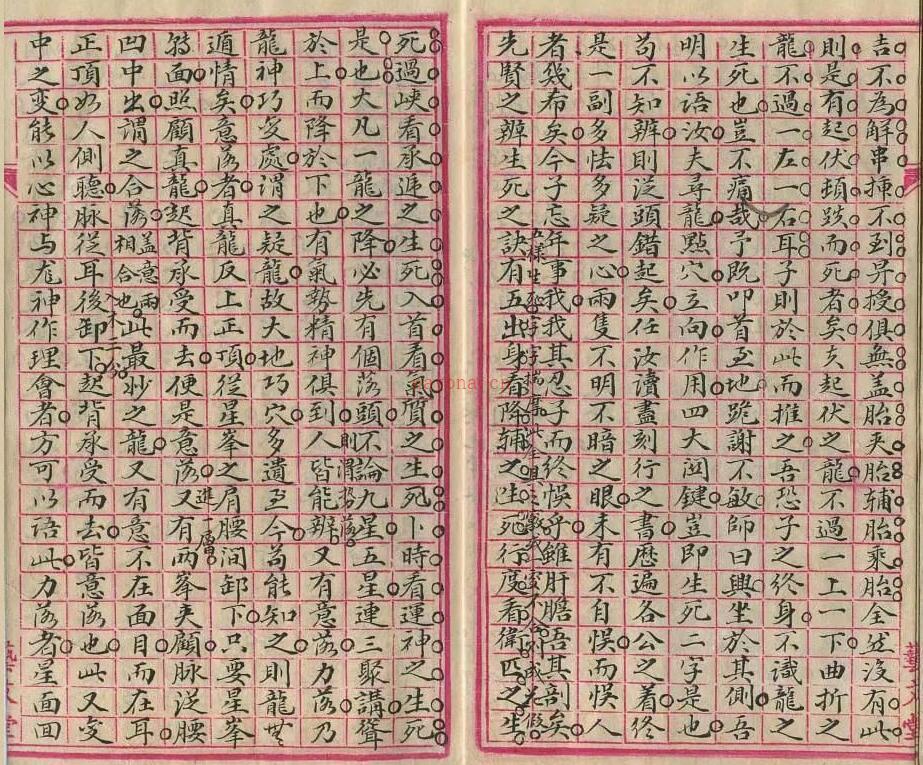 吉不為解串揷不到昇授俱無盖胎夾胎輔胎乘胎全然沒有此
則是有起伏頓跌而死者矣夫起伏之龍不過一上一下曲折之
龍不過一左一右耳子則於此而推之吾恐子之終身不識龍之
生死也豈不痛哉予既叩首至地跪謝不敏師曰興坐於其側吾
明以語汝夫尋龍點穴立向作用四大関鍵豈即生死二字是也
苟不知辨則泛頭錯起矣任汝讀盡刻行之書歷遍各公之着終
是一副多怯多疑之心兩隻不明不暗之眼未有不自悞而悞人
者幾希矣今子忘年事我我其忍子而終悞乎雖肝膽吾其剖矣
先賢之辨生死之訣有五出身看降輔之生死行度看衛匹之生
死過峽看承遞之生死入首看氣質之生死卜時看運神之生死
是也大凡一龍之降必先有個落頭不論九星五星連三聚講聳
於上而降於下也有氣勢精神俱到人皆能辨又有意落力落乃
則謂勢落
龍神巧変處謂之疑龍故大地巧穴多遺至今苟能知之則龍無
遁情矣意落者真龍反上正頂從星峯之肩腰間卸下只要星峯
轉面照顧真龍起背承受而去便是意落又有兩峯夾顧脈泛腰
進一層
凹中出謂之合落此最妙之龍又有意不在面目而在耳
盖意兩相合也
正頂如人側聽脈從耳後卸下起背承受而去皆意落也此又変
中之变能以心神与龙神作理會者方可以語此力落者星面回
daonan.com